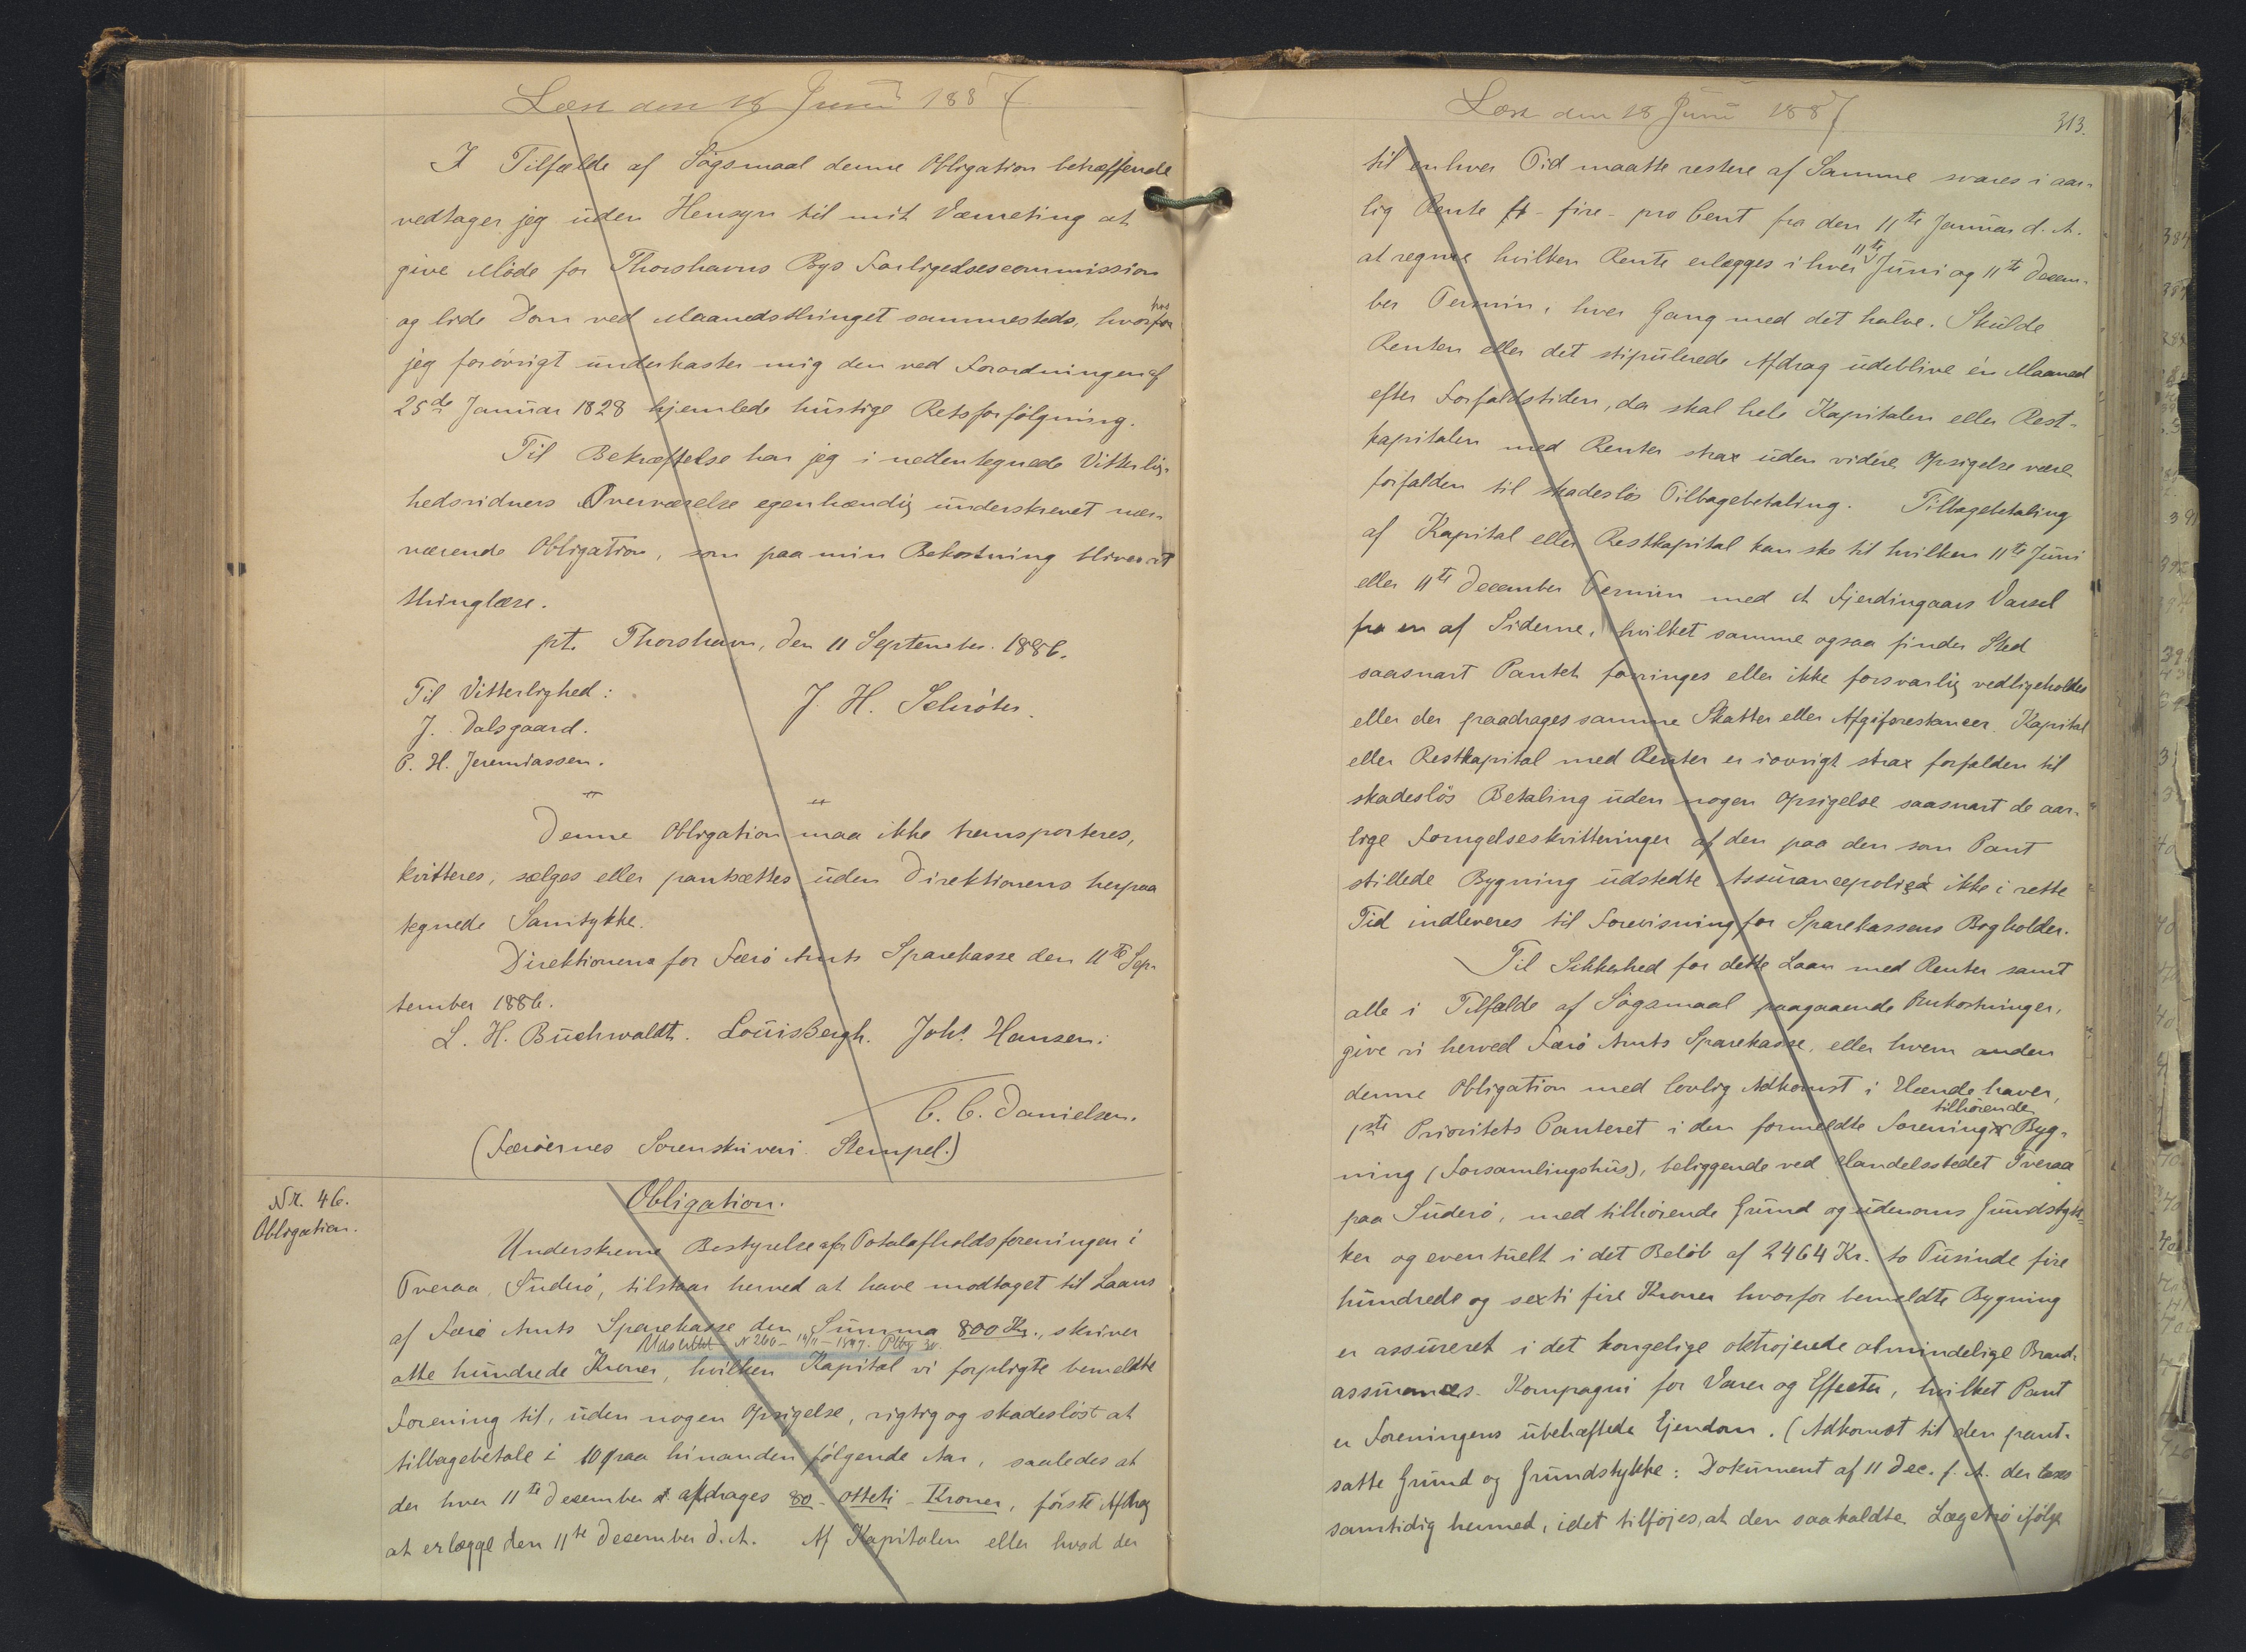 Læst den 18 Juni 1887
I Tilfælde af Søgsmaal denne Obligation betræffende
vedtager jeg uden Hensyn til mit Værneting at
give Møde for Thorshavns Bys Forligelsescommission
og lide Dom ved Maanedsthinget sammesteds, hvorfor
jeg forøvrigt underkaster mig den ved Forordningen af
25de Januar 1828 hjemlede hurtige Retsforfølgning.
Til Bekræftelse har jeg i nedentegnede Vitterlig-
hedsvidners Overværelse egenhændig underskrevet nær-
værende Obligation, som paa min Bekostning bliver at
thinglæse.
pt. Thorshavn, den 11 September 1886.
Til Vitterlighed:
J. H. Schrøter.
J. Dalsgaard.
P. H. Jeremiassen.
Denne Obligation maa ikke transporteres,
kvitteres, sælges eller pantsættes uden Direktionens herpaa
tegnede Samtykke.
Direktionen for Færø Amts Sparekasse den 11te Sep-
tember 1886.
L. H. Buchwaldt. Louis Bergh. Johs Hansen.
C. C. Danielsen.
(Færøernes Sorenskriveri Stempel.)
Nr. 46.
Obligation.
Obligation.
Underskrevne Bestyrelse for Totalafholdsforeningen i
Tveraa, Suderø, tilstaar herved at have modtaget til Laans
af Færø Amts Sparekasse den Summa 800 Kr., skriver
Udslettet N 260 - 14/11 - 1897. Ptbg 30.
otte hundrede Kroner, hvilken Kapital vi forpligte bemeldte
Forening til, uden nogen Opsigelse, rigtig og skadesløst at
tilbagebetale i 10 paa hinanden følgende Aar, saaledes at
der hver 11te December afdrages 80 - otteti - Kroner, første Afdrag
at erlægge den 11te December d. A. Af Kapitalen eller hvad der
Læst den 18 Juni 1887
313.
til enhver Tid maatte restere af Samme svares i aar-
lig Rente 4 - fire - pro Cent fra den 11te Januar d. A.
11te
at regne hvilken Rente erlægges i hver Juni og 11te Decem-
ber Termin, hver Gang med det halve. Skulde
Renten eller det stipulerede Afdrag udeblive én Maaned
efter Forfaldstiden, da skal hele Kapitalen eller Rest-
kapitalen med Renter strax uden videre Opsigelse være
forfalden til skadesløs Tilbagebetaling. Tilbagebetaling
af Kapital eller Restkapital kan ske til hvilken 11te Juni
eller 11te December Termin med et Fjerdingaars Varsel
fra en af Siderne, hvilket samme ogsaa finder Sted
saasnart Pantet forringes eller ikke forsvarlig vedligeholdes
eller der paadrages samme Skatter eller Afgiftsrestancer. Kapital
eller Restkapital med Renter er iøvrigt strax forfalden til
skadesløs Betaling uden nogen Opsigelse saasnart de aar-
lige Fornyelseskvitteringer af den paa den som Pant
stillede Bygning udstedte Assurancepolice ikke i rette
Tid indleveres til Forevisning for Sparekassens Bogholder.
Til Sikkerhed for dette Laan med Renter samt
alle i Tilfælde af Søgsmaal paagaaende Omkostninger,
give vi herved Færø Amts Sparekasse, eller hvem anden
denne Obligation med lovlig Adkomst i Hænde haver,
tilhørende
1ste Prioritets Panteret i den formeldte Forening Byg-
ning (Forsamlingshus), beliggende ved Handelsstedet Tveraa
paa Suderø, med tilhørende Grund og udenoms Grundstyk-
ker og eventuelt i det Beløb af 2464 Kr. to Tusinde fire
hundrede og sexti fire Kroner hvorfor bemeldte Bygning
er assureret i det kongelige oktrojerede almindelige Brand-
assurances-Kompagni for Varer og Effecter, hvilket Pant
er Foreningens ubehæftede Ejendom. (Adkomst til den pant-
satte Grund og Grundstykke: Dokument af 11 Dec. f. A. der læses
samtidig hermed, idet tilføjes, at den saakaldte Lægetrø ifølge